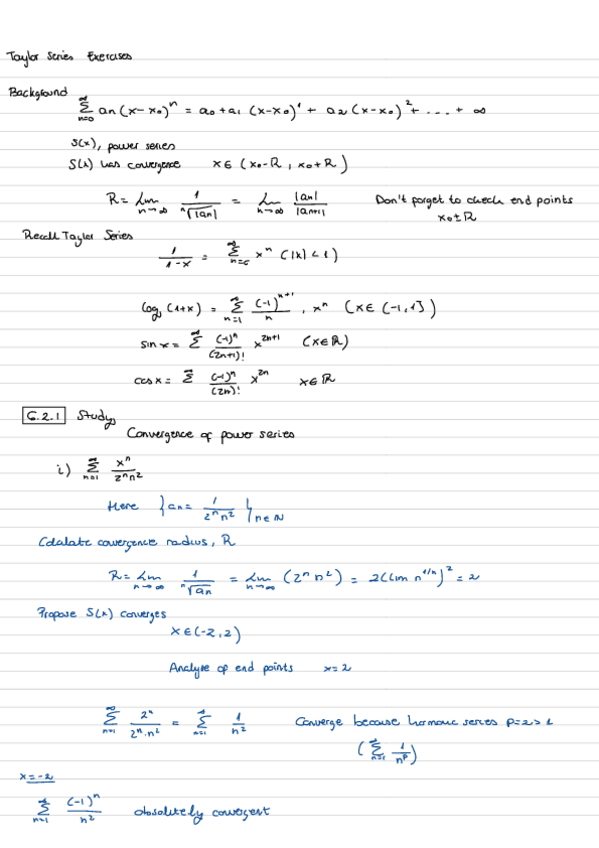 Taylor Series Exercises
Background
∞∑n=0 an (x-x₀)ⁿ = a₀ + a₁ (x-x₀)¹ + a₂ (x-x₀)² + ... + ∞
S(x), power series
S(x) has convergence x ∈ (x₀-R, x₀+R)
R = lim n→∞ 1/ⁿ√|an| = lim n→∞ |an|/|an+1| Don't forget to check end points
x₀±R
Recall Taylor Series
1/(1-x) = ∞∑n=0 xⁿ (|x|<1)
log (1+x) = ∞∑n=1 (-1)ⁿ⁺¹/n . xⁿ (x ∈ (-1,1])
sin x = ∞∑ (-1)ⁿ/(2n+1)! x²ⁿ⁺¹ (x∈ℝ)
cos x = ∞∑ (-1)ⁿ/(2n)! x²ⁿ x∈ℝ
6.2.1 Study
Convergence of power series
i) ∞∑n=1 xⁿ/2ⁿn²
Here {an = 1/2ⁿn²}n∈N
Calculate convergence radius, R
R = lim n→∞ 1/ⁿ√an = lim n→∞ (2ⁿ n²) = 2(lim n^1/n)² = 2
Propose S(x) converges
x ∈ (-2, 2)
Analyse of end points x=2
∞∑n=1 2ⁿ/2ⁿ.n² = ∞∑n=1 1/n² Converge because harmonic series p=2>1
(∞∑n=1 1/nᵖ)
x=-2
∞∑n=1 (-1)ⁿ/n² absolutely convergent